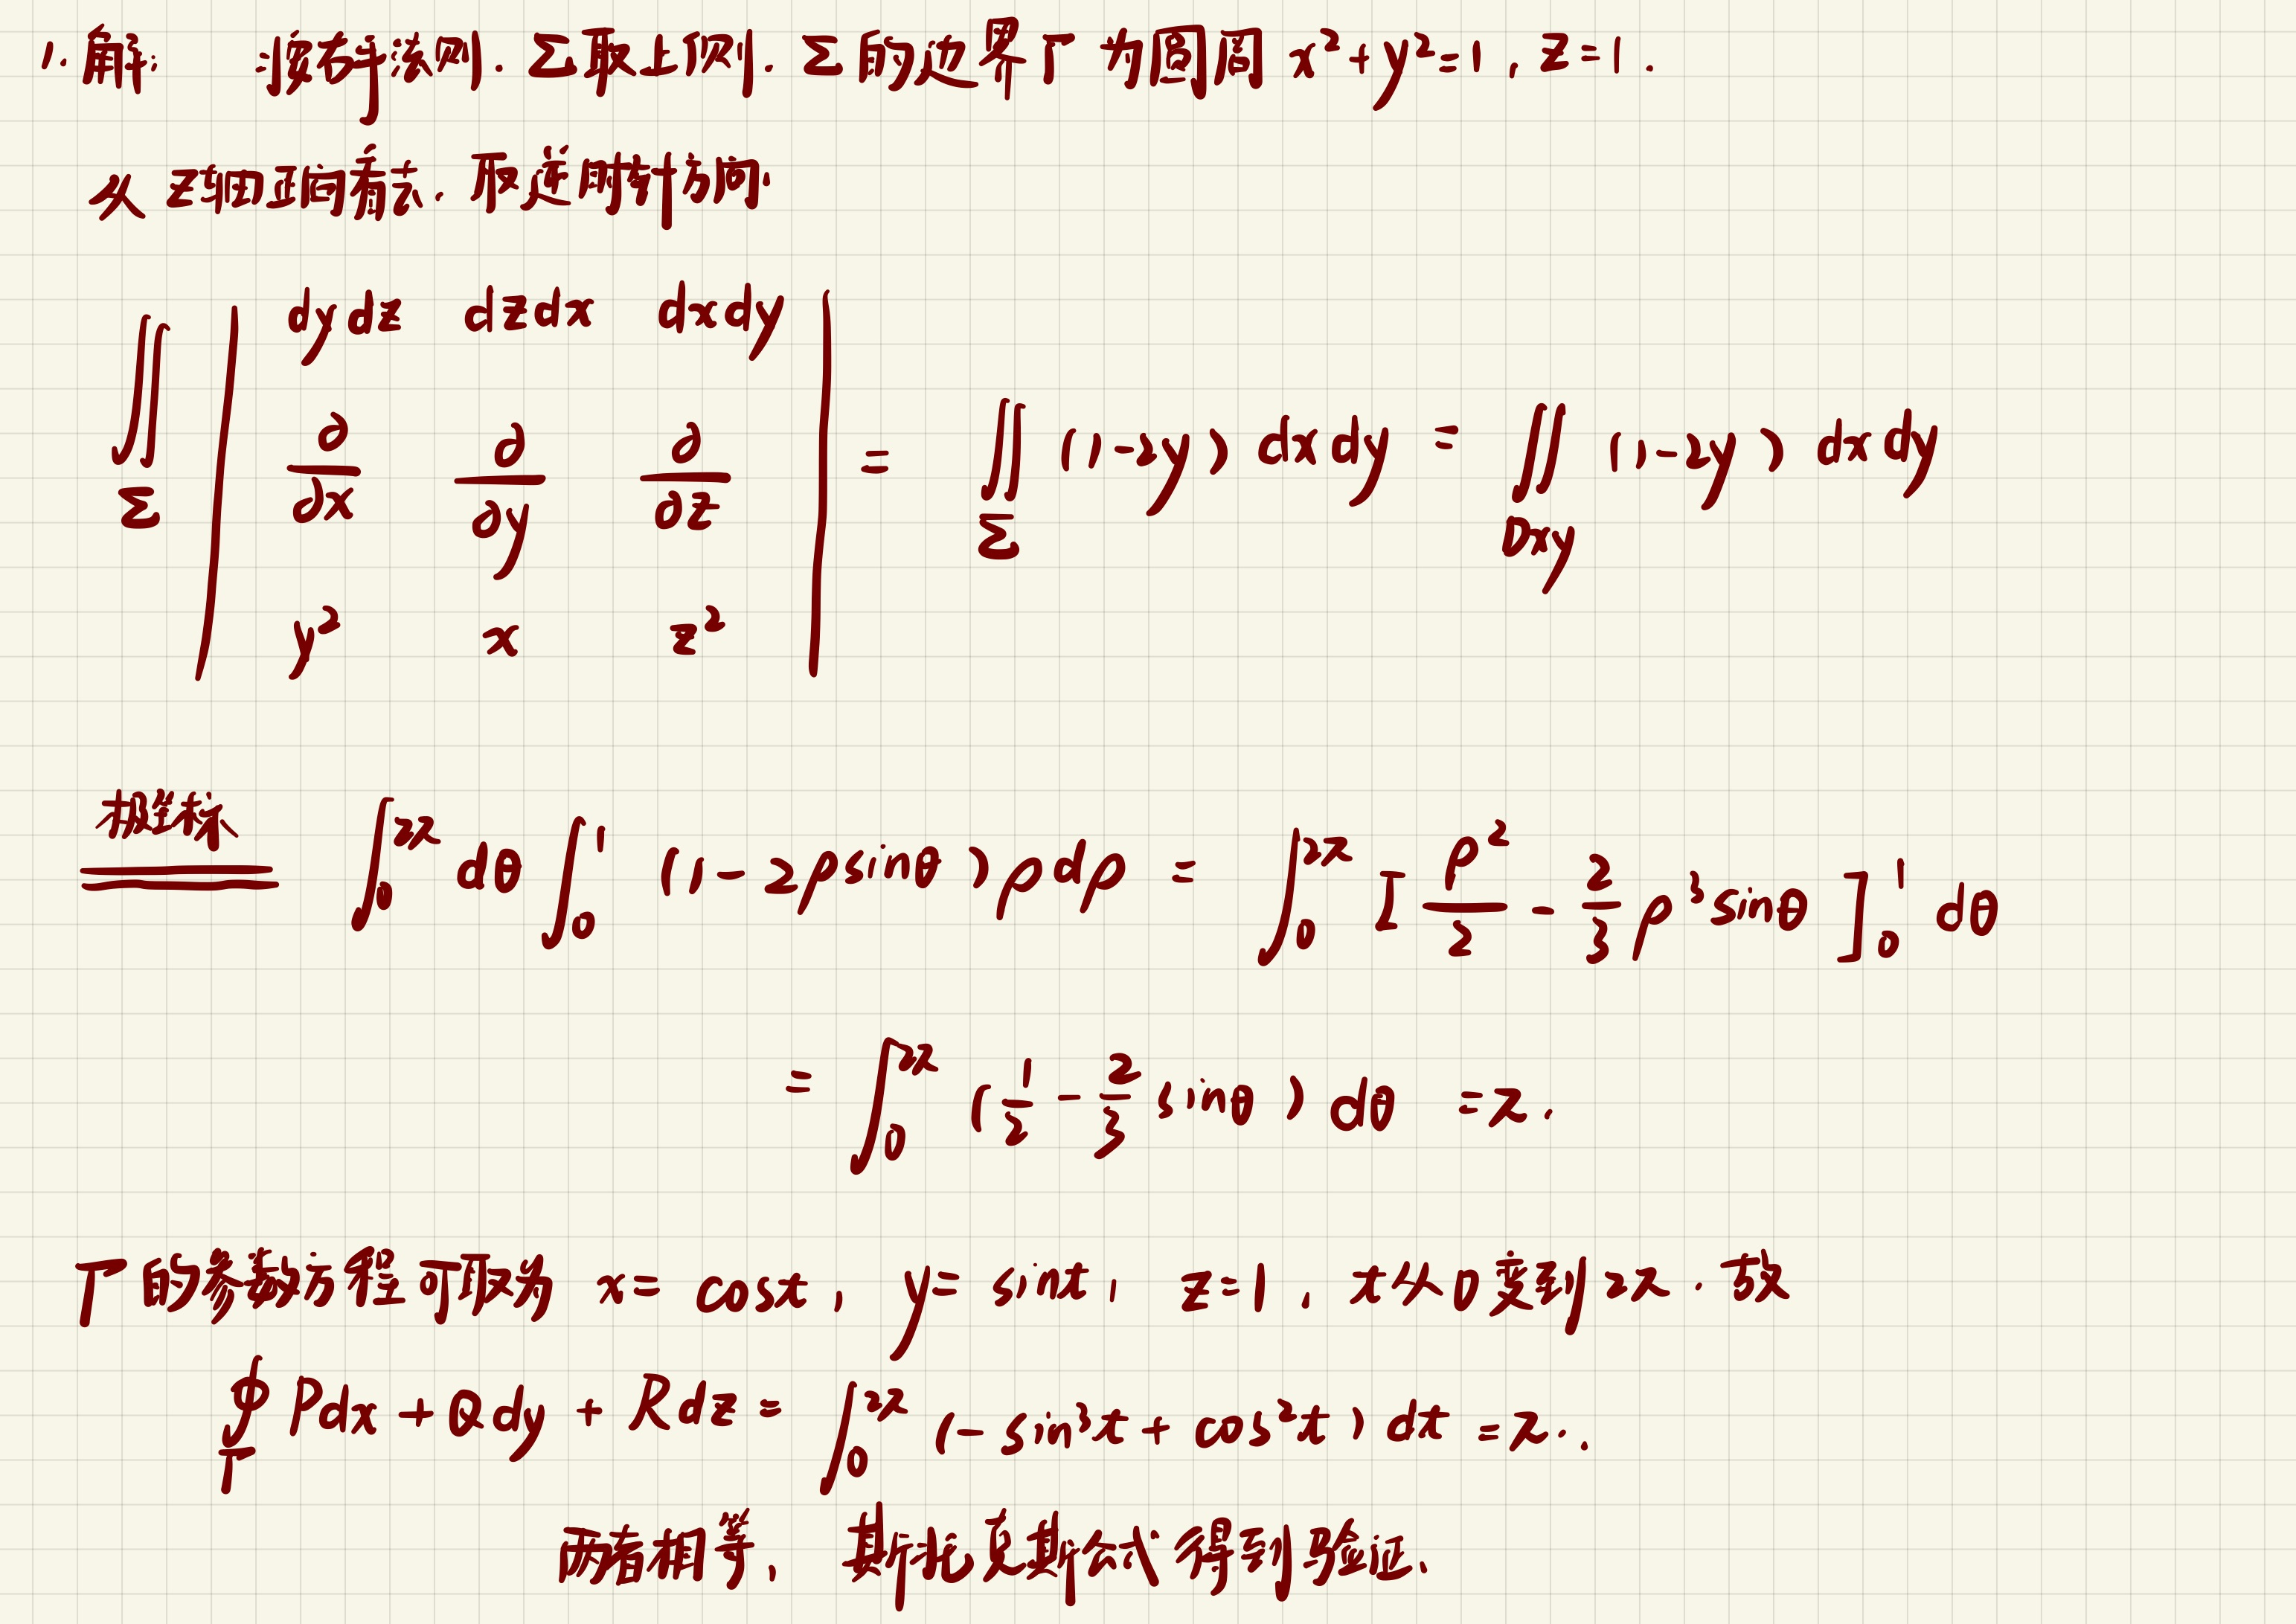 1. 解: 按右手法则. Σ取上侧. Σ的边界Γ为圆周 x²+y²=1, z=1.
从z轴正向看去. 取逆时针方向.
∬_Σ | dydz dzdx dxdy ; ∂/∂x ∂/∂y ∂/∂z ; y² x z² | = ∬_Σ (1-2y) dxdy = ∬_Dxy (1-2y) dxdy
极坐标 ∫₀^2π dθ ∫₀^1 (1-2ρsinθ)ρdρ = ∫₀^2π [ρ²/2 - 2/3 ρ³sinθ]₀^1 dθ
= ∫₀^2π (1/2 - 2/3 sinθ) dθ = π.
Γ的参数方程可取为 x= cost, y= sint, z=1, t从0变到2π. 故
∮_Γ Pdx+Qdy+Rdz= ∫₀^2π (-sin³t+cos²t) dt =π.
两者相等, 斯托克斯公式得到验证.